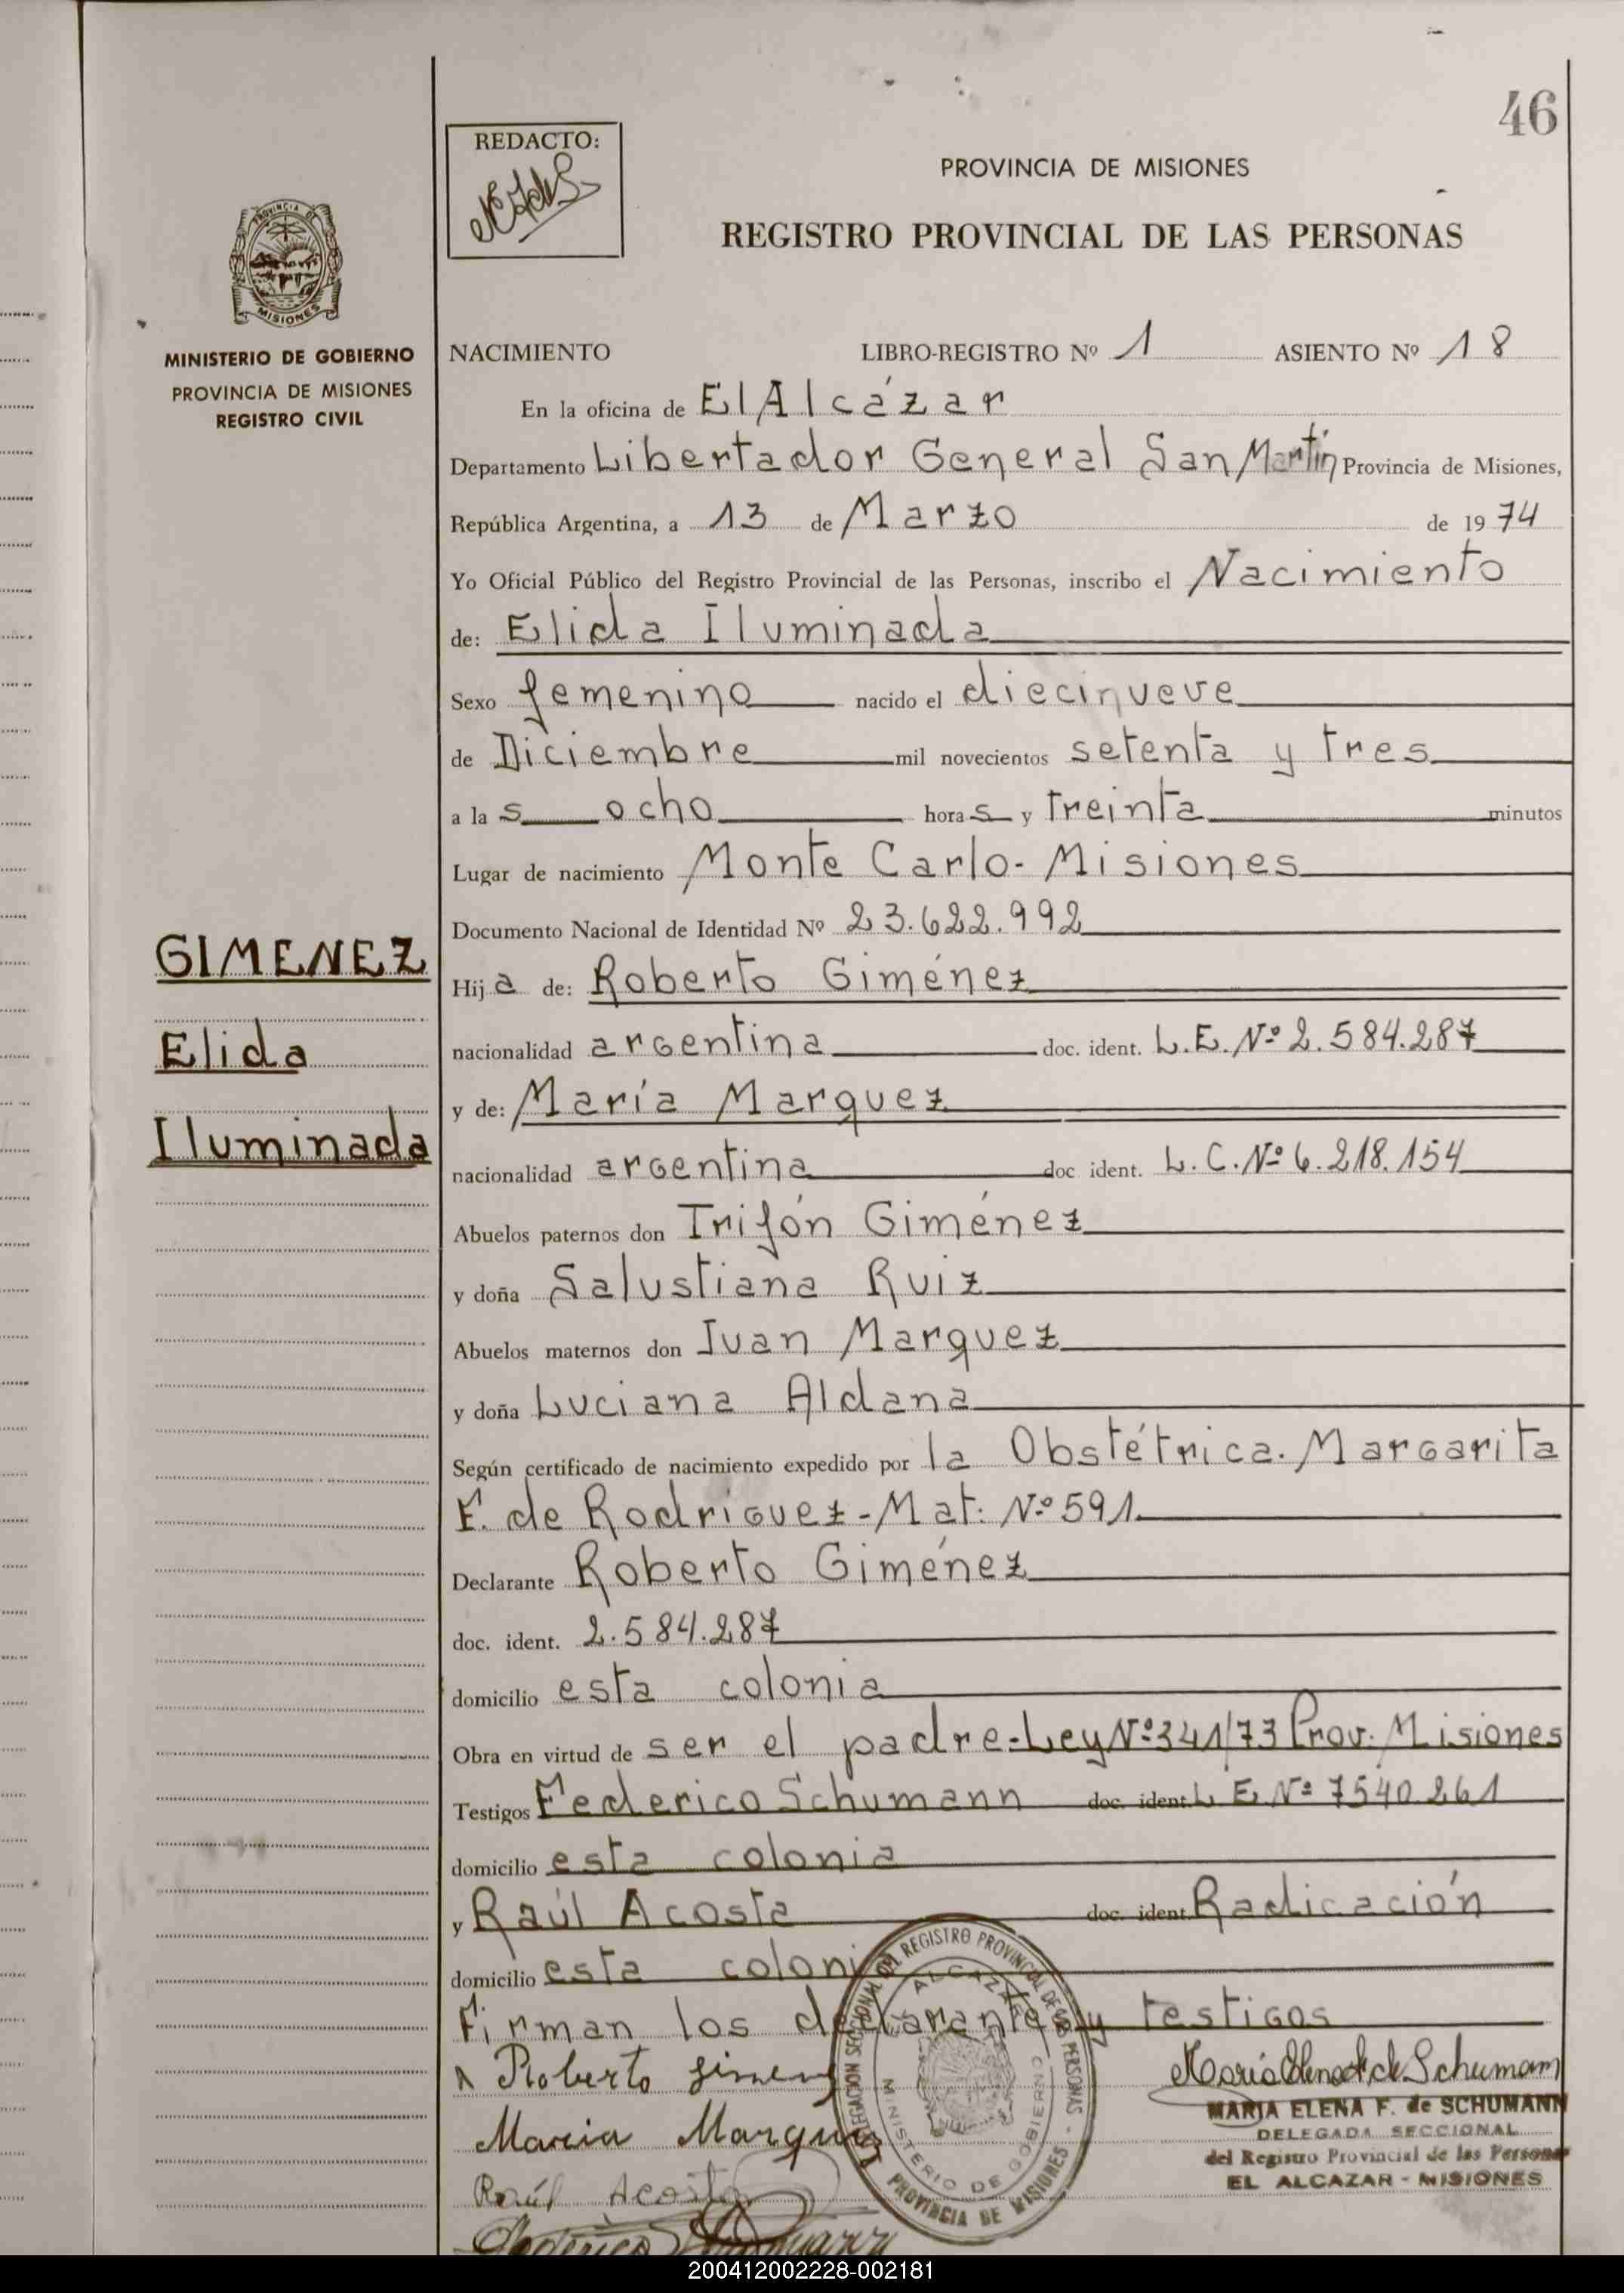 46
REDACTO:
PROVINCIA DE MISIONES
REGISTRO PROVINCIAL DE LAS PERSONAS
PROVINCIA DE
MISIONES
MINISTERIO DE GOBIERNO
PROVINCIA DE MISIONES
REGISTRO CIVIL
NACIMIENTO LIBRO-REGISTRO Nº 1 ASIENTO Nº 18
En la oficina de El Alcázar
Departamento Libertador General San Martín Provincia de Misiones,
República Argentina, a 13 de Marzo de 1974
Yo Oficial Público del Registro Provincial de las Personas, inscribo el Nacimiento
de: Elida Iluminada
Sexo femenino nacido el diecinueve
de Diciembre mil novecientos setenta y tres
a las ocho horas y treinta minutos
Lugar de nacimiento Monte Carlo - Misiones
Documento Nacional de Identidad Nº 23.622.992
GIMENEZ
Elida
Iluminada
Hija de: Roberto Giménez
nacionalidad argentina doc. ident. L.E. Nº 2.584.287
y de: María Marquez
nacionalidad argentina doc ident. L.C. Nº 6.218.154
Abuelos paternos don Trifón Giménez
y doña Salustiana Ruiz
Abuelos maternos don Juan Marquez
y doña Luciana Aldana
Según certificado de nacimiento expedido por la Obstétrica. Margarita
E. de Rodriguez - Mat: Nº 591
Declarante Roberto Giménez
doc. ident. 2.584.287
domicilio esta colonia
Obra en virtud de ser el padre - Ley Nº 341/73 Prov. Misiones
Testigos Federico Schumann doc. ident. L E. Nº 7540.261
domicilio esta colonia
y Raúl Acosta doc. ident. Radicación
domicilio esta colonia
Firman los declarantes y testigos
Roberto Gimenez
Maria Marquez
Raúl Acosta
Federico Schumann
DELEGACION SECCIONAL DEL REGISTRO PROVINCIAL DE LAS PERSONAS
EL ALCAZAR
MINISTERIO DE GOBIERNO
PROVINCIA DE MISIONES
María Elena F. de Schumann
MARIA ELENA F. de SCHUMANN
DELEGADA SECCIONAL
del Registro Provincial de las Personas
EL ALCAZAR - MISIONES
200412002228-002181